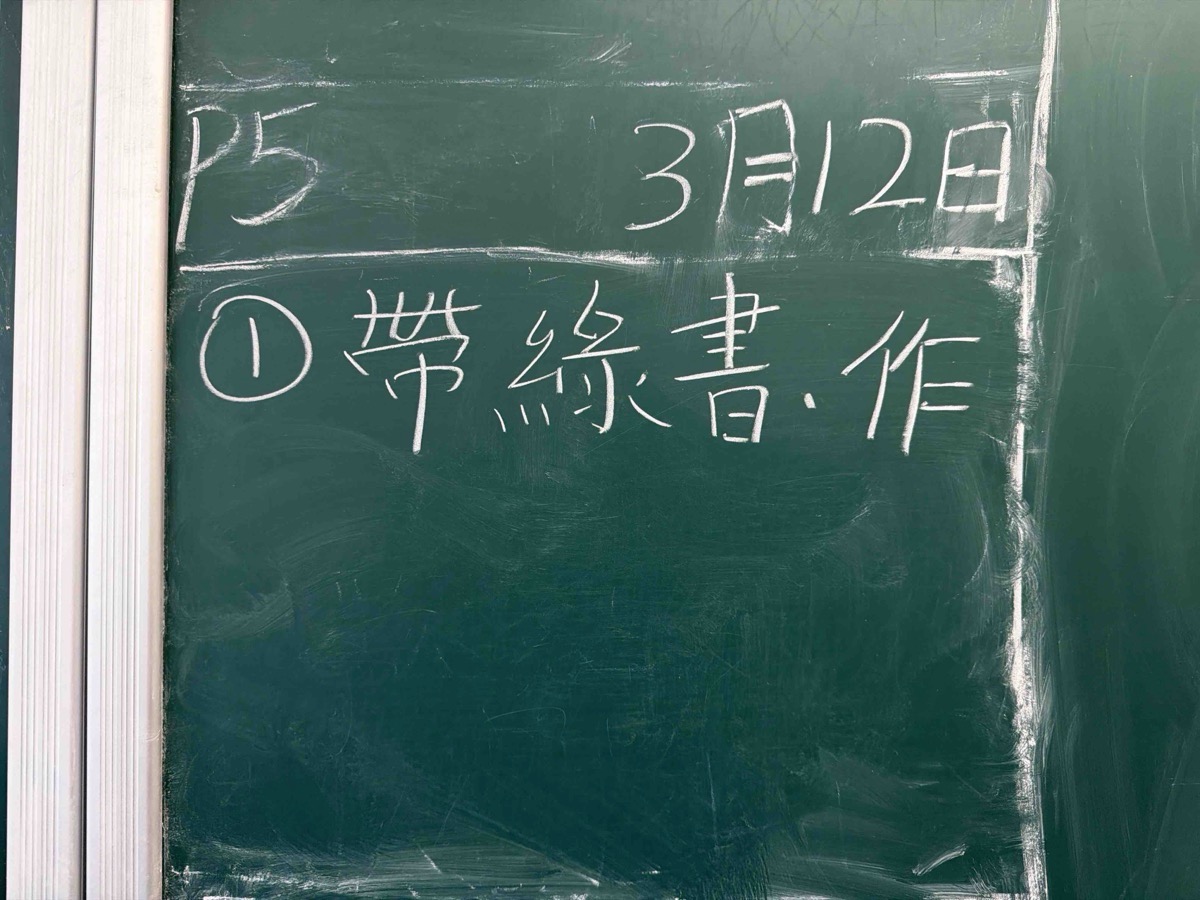 P5 3月12日
① 帶綠書.作